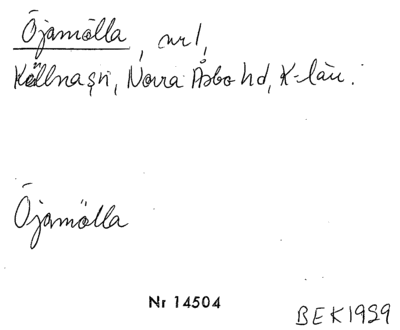 Öjamölla, nr 1,
Källna sn, Norra Åsbo hd, K-län.
Öjamölla
Nr 14504
BEK 1929